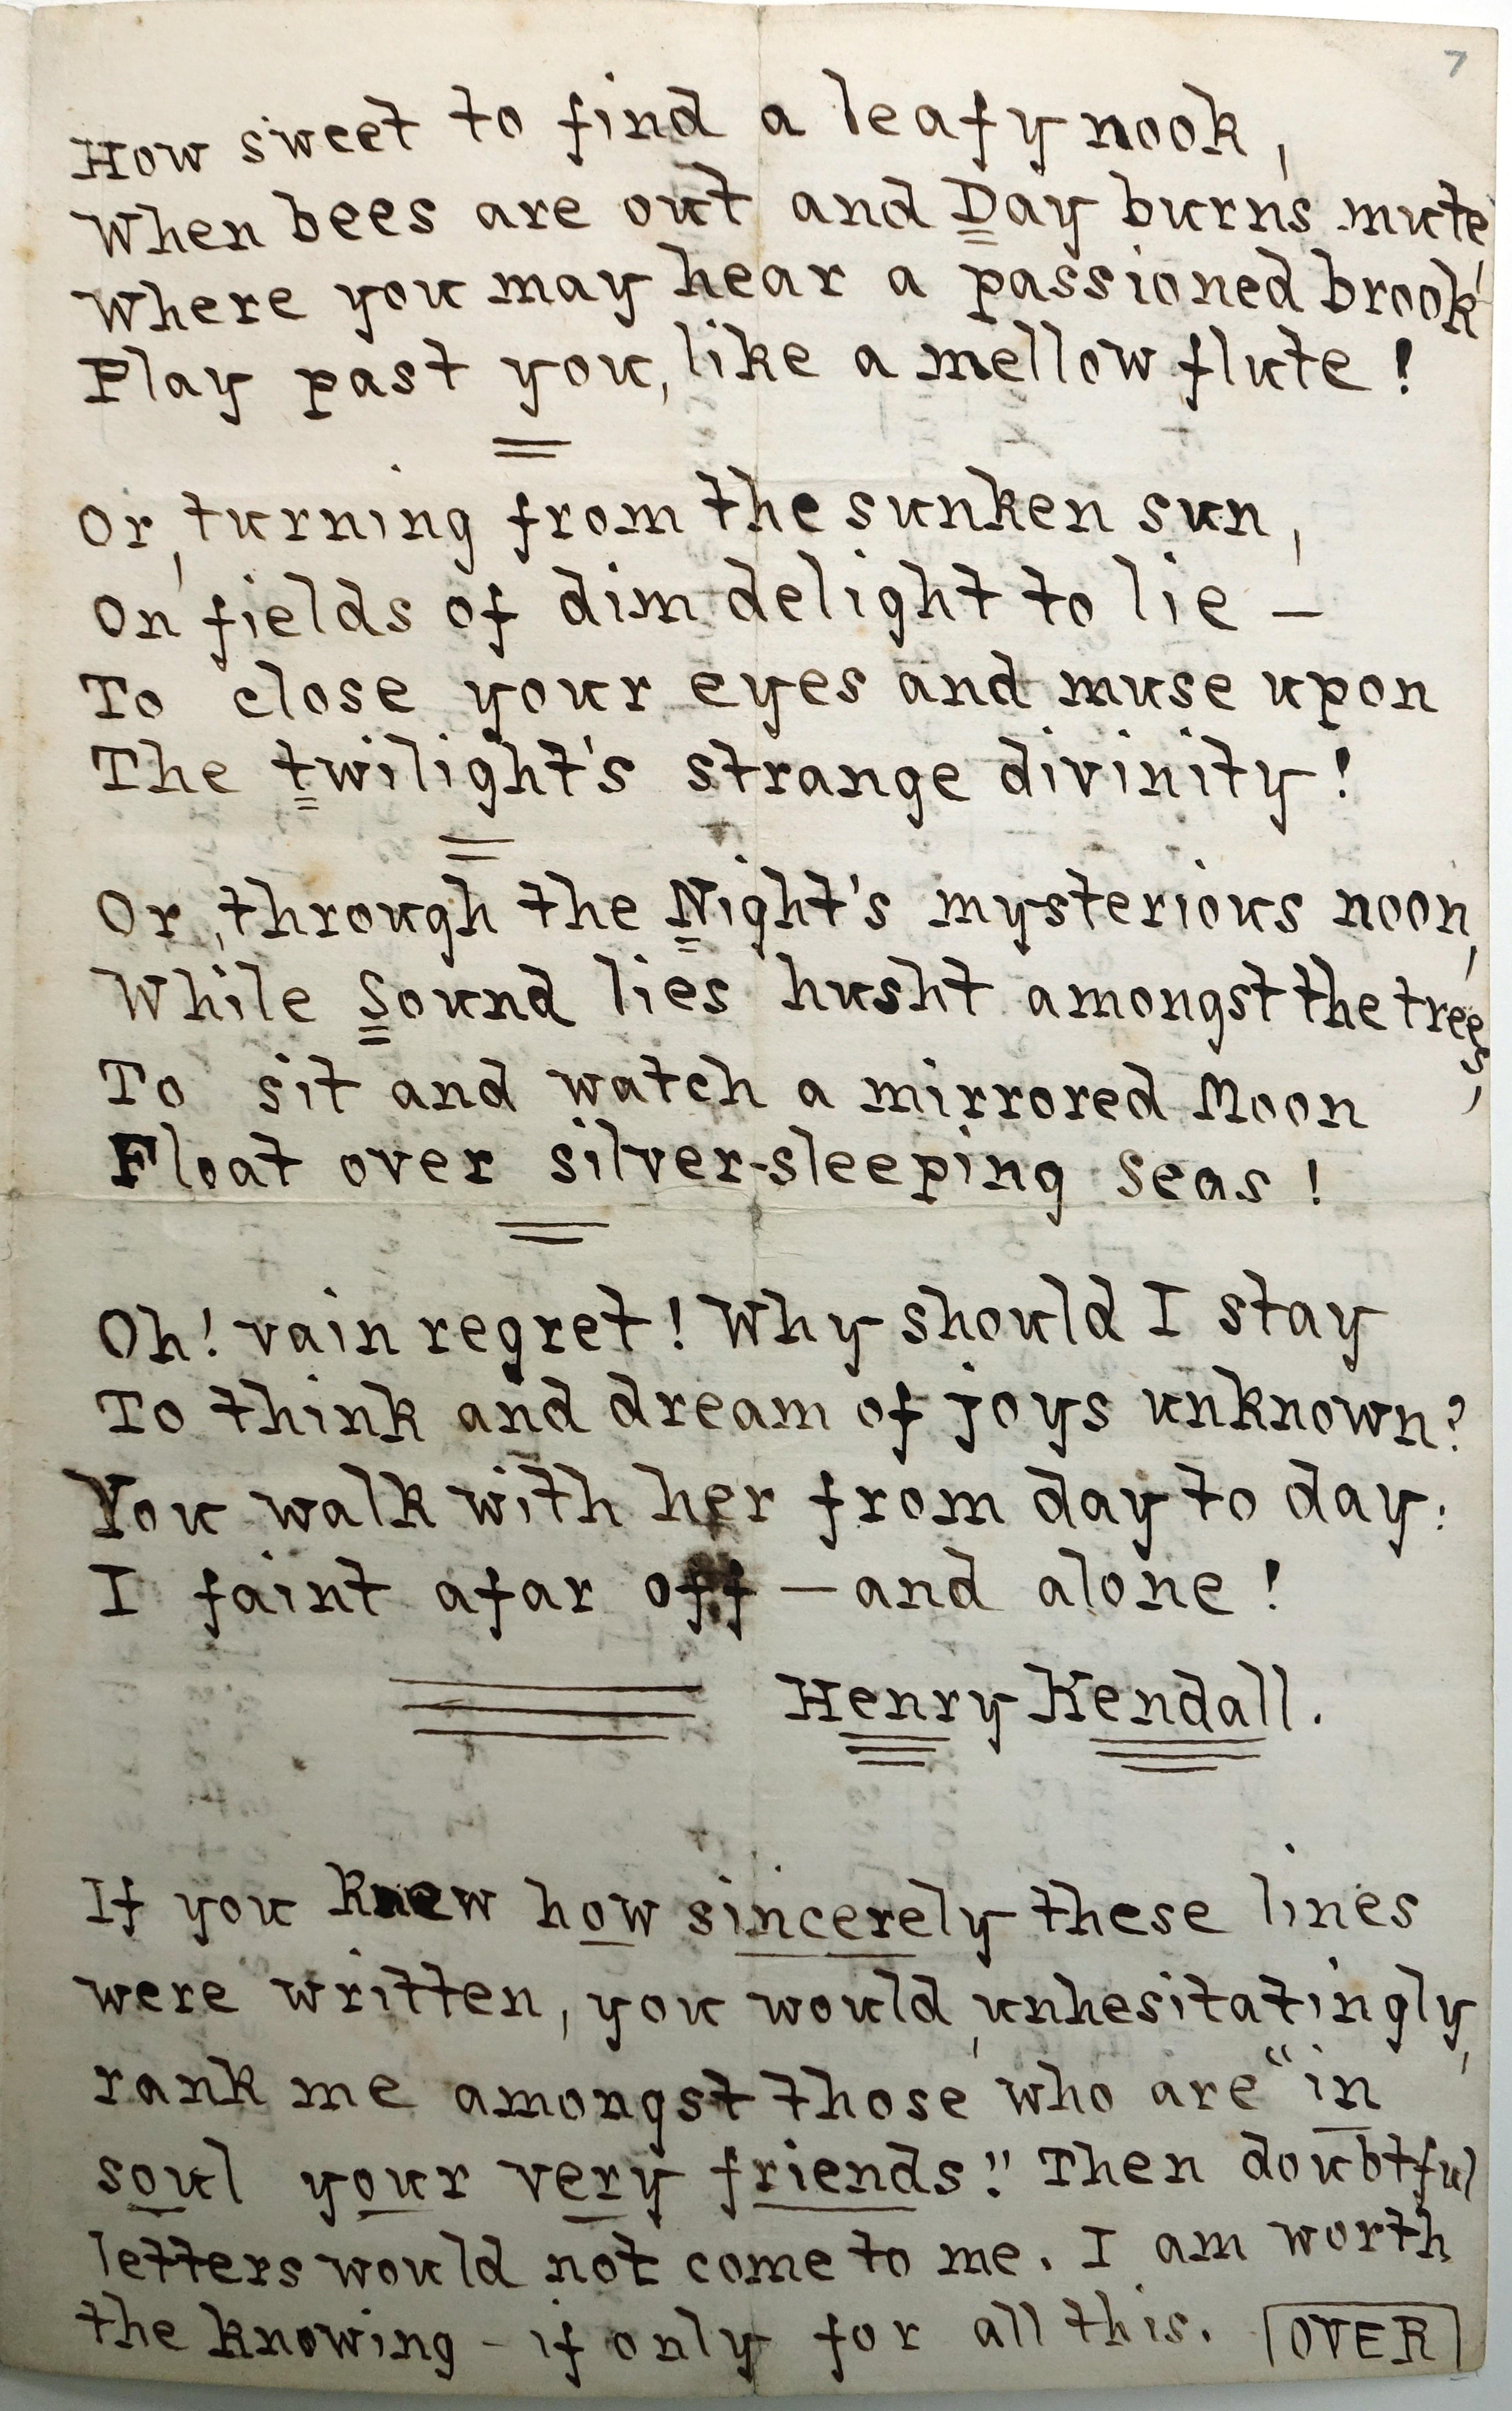 7
How sweet to find a leafy nook,
When bees are out and Day burns mute,
Where you may hear a passioned brook
Play past you, like a mellow flute!
Or, turning from the sunken sun,
On fields of dim delight to lie —
To close your eyes and muse upon
The twilight's strange divinity!
Or, through the Night's mysterious noon,
While Sound lies husht amongst the trees,
To sit and watch a mirrored Moon
Float over silver-sleeping seas!
Oh! vain regret! Why should I stay
To think and dream of joys unknown?
You walk with her from day to day:
I faint afar off — and alone!
Henry Kendall.
If you knew how sincerely these lines
were written, you would, unhesitatingly,
rank me amongst those who are "in
soul your very friends." Then doubtful
letters would not come to me. I am worth
the knowing - if only for all this. OVER